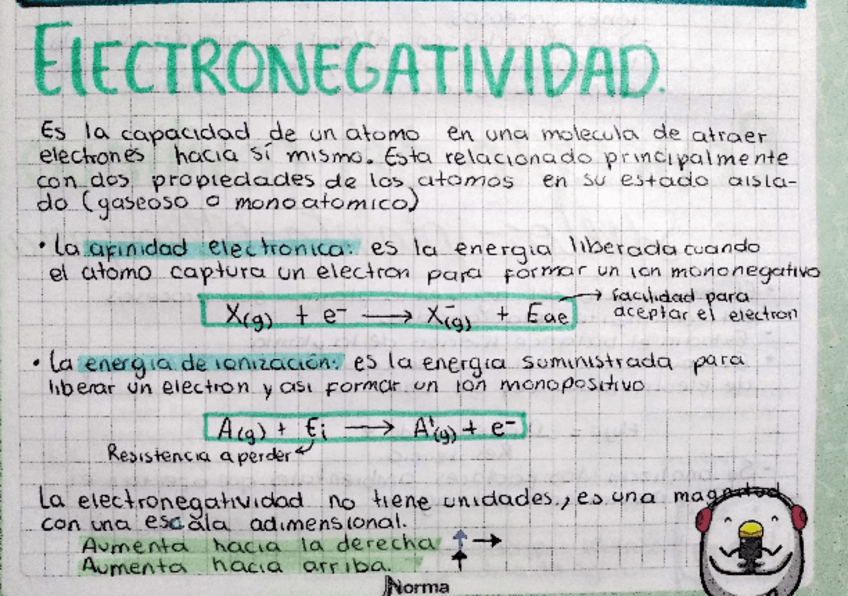 ElECTRONEGATIVIDAD.
Es la capacidad de un atomo en una molecula de atraer
electrones hacia sí mismo. Esta relacionado principalmente
con dos propiedades de los atomos en su estado aisla-
do (gaseoso o monoatomico)
• La afinidad electronica: es la energia liberada cuando
el atomo captura un electron para formar un ion mononegativo
X(g) + e⁻ → X⁻(g) + Eae → facilidad para
aceptar el electron
• La energia de ionización: es la energia suministrada para
liberar un electron y asi formar un ion monopositivo
A(g) + Ei → A⁺(g) + e⁻
Resistencia a perder
La electronegatividad no tiene unidades, es una magnitud
con una escala adimensional.
Aumenta hacia la derecha ↑ →
Aumenta hacia arriba. ↑
Norma